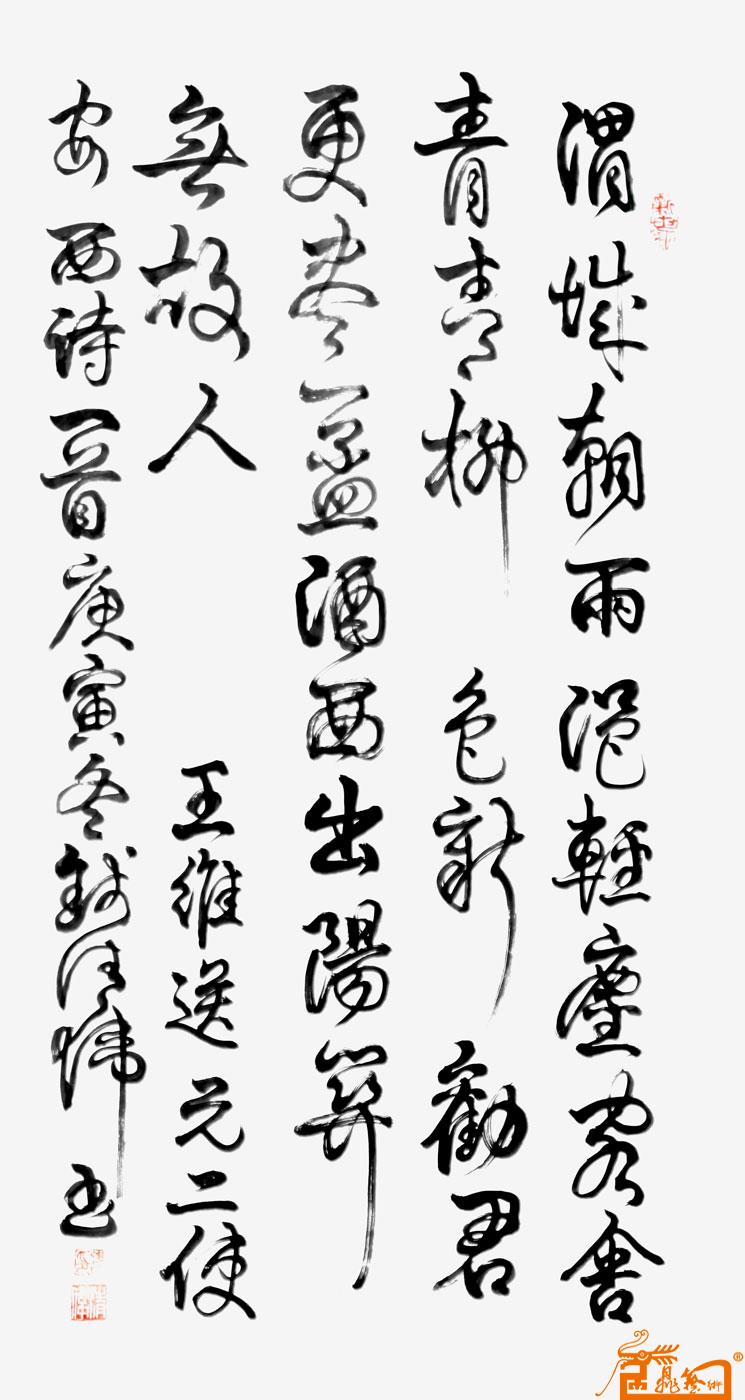 渭城朝雨浥輕塵客舍
青青柳色新勸君
更盡一盃酒西出陽關
無故人王維送元二使
安西詩一首庚寅冬錢書